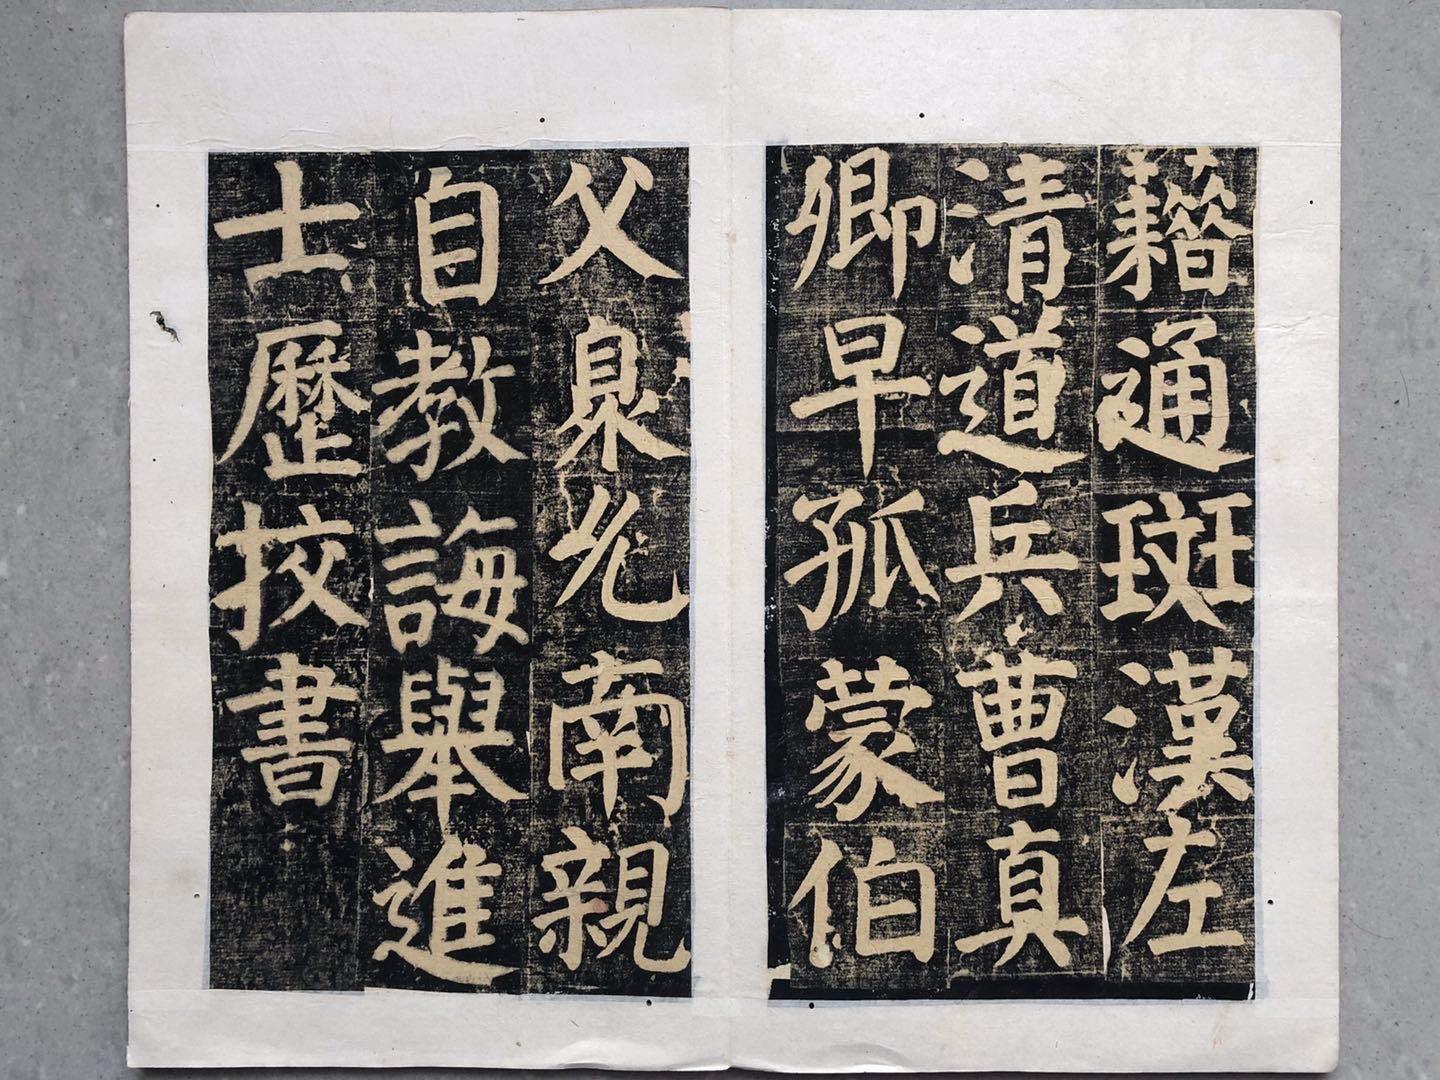 籍通班漢左
清道兵曹真
卿早孤蒙伯
父臮允南親
自教誨舉進
士歷挍書